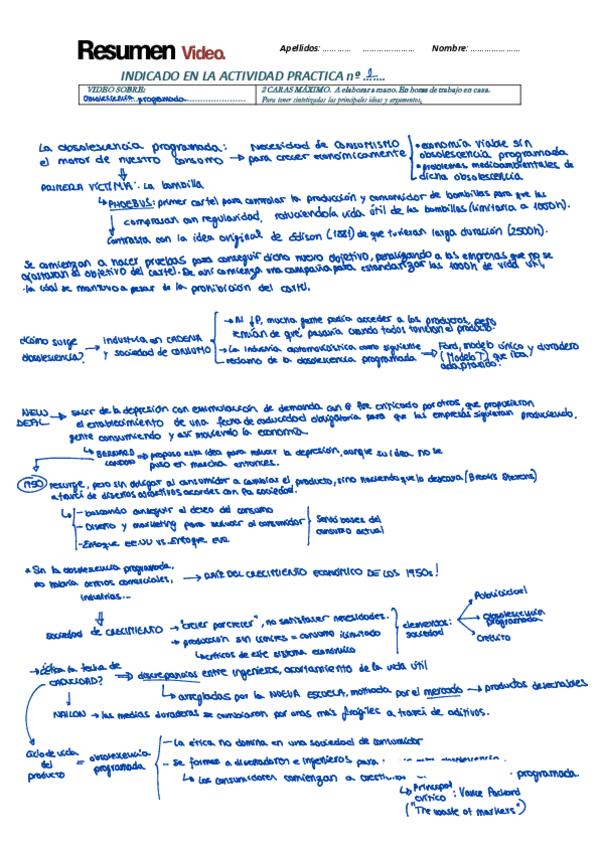 Resumen Video.
Apellidos: ........... .................... Nombre: ....................
INDICADO EN LA ACTIVIDAD PRACTICA nº ..1....
VIDEO SOBRE:
Obsolescencia programada
2 CARAS MÁXIMO. A elaborar a mano. En horas de trabajo en casa.
Para tener sintetizadas las principales ideas y argumentos.
La obsolescencia programada:
el motor de nuestro consumo → Necesidad de CONSUMISMO
para crecer económicamente
• economía viable sin
obsolescencia programada
• problemas medioambientales de
dicha obsolescencia
PRIMERA VÍCTIMA: La bombilla
↳ PHOEBUS: primer cartel para controlar la producción y consumidor de bombillas para que las
compraran con regularidad, reduciendo la vida útil de las bombillas (limitaría a 1000h).
Contrasta con la idea original de Edison (1881) de que tuvieran larga duración (2500h).
Se comienzan a hacer pruebas para conseguir dicho nuevo objetivo, penalizando a las empresas que no se
ajustaran al objetivo del cartel. De ahí comienza una campaña para estandarizar las 1000h de vida útil,
la cual se mantuvo a pesar de la prohibición del cartel.
¿Cómo surge
obsolescencia? → Industria en CADENA
y sociedad de CONSUMO
→ Al ↓P, mucha gente podía acceder a los productos, pero
temían de qué pasaría cuando todos tuvieran el producto.
→ La industria automovilística como siguiente
reclamo de la obsolescencia programada → Ford, modelo único y duradero
(Modelo T) que iba
adaptando.
NEW
DEAL → salir de la depresión con estimulación de demanda con @ fue criticado por otros que propusieron
el establecimiento de una fecha de caducidad obligatoria para que las empresas siguieran produciendo,
gente consumiendo y así moviendo la economía.
↳ BERNARD
LONDON → propuso esta idea para reducir la depresión, aunque su idea no se
puso en marcha entonces.
1950 resurge, pero sin obligar al consumidor a cambiar el producto, sino haciendo que lo deseara (Brooks Stevens)
a través de diseños atractivos acordes con la sociedad.
↳ - buscando conseguir el deseo del consumo
- Diseño y marketing para seducir al consumidor
- Enfoque EE.UU vs. Enfoque EUR
Sentó bases del
consumo actual
* Sin la obsolescencia programada,
no habría centros comerciales,
industrias... → RAÍZ DEL CRECIMIENTO ECONÓMICO DE LOS 1950s!
SOCIEDAD DE CRECIMIENTO → "crecer por crecer", no satisfacer necesidades.
→ producción sin límites = consumo ilimitado
↳ críticos de este sistema económico
elementos:
sociedad
Publicidad
obsolescencia
programada
Crédito
→ ¿Ética la fecha de
CADUCIDAD? → discrepancias entre ingenieros, acortamiento de la vida útil
↳ arregladas por la NUEVA ESCUELA, motivada por el mercado → productos desechables
NAILON → las medias duraderas se cambiaron por unas más frágiles a través de aditivos.
Ciclo de vida
del
producto = obsolescencia
programada
- La ética no domina en una sociedad de consumidor
- Se forman a diseñadores e ingenieros para
↳ Los consumidores comienzan a programada.
↳ Principal
crítico: Vance Packard
("The waste of markers")